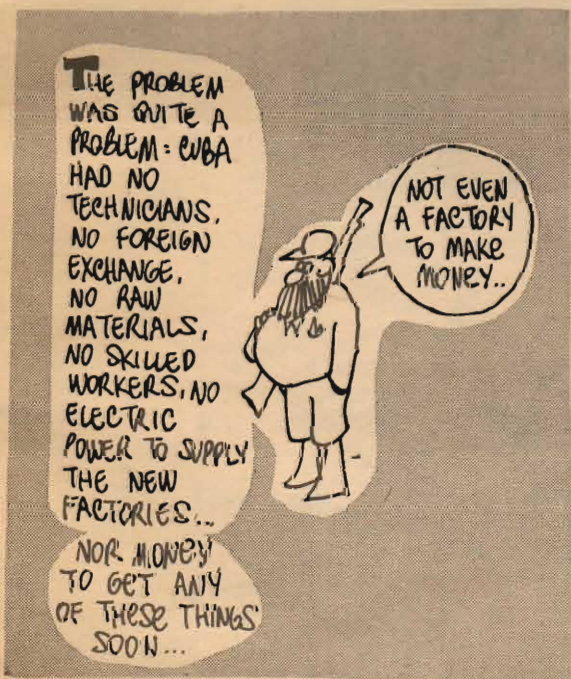 THE PROBLEM
WAS QUITE A
PROBLEM: CUBA
HAD NO
TECHNICIANS,
NO FOREIGN
EXCHANGE,
NO RAW
MATERIALS,
NO SKILLED
WORKERS, NO
ELECTRIC
POWER TO SUPPLY
THE NEW
FACTORIES...
NOR MONEY
TO GET ANY
OF THESE THINGS
SOON...
NOT EVEN
A FACTORY
TO MAKE
MONEY..